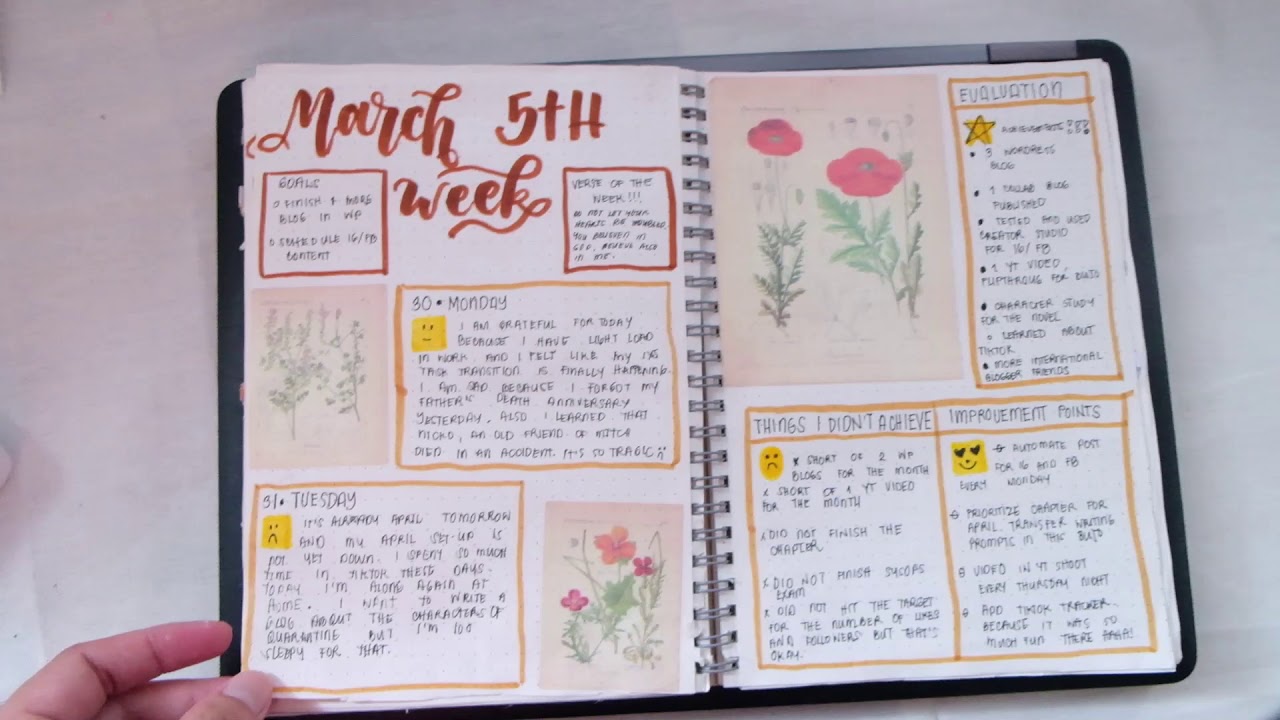 March 5TH
week
GOALS
○ FINISH 4 MORE
BLOG IN WP
○ SCHEDULE IG/FB
CONTENT
VERSE OF THE
WEEK!!!
DO NOT LET YOUR
HEARTS BE TROUBLED.
YOU BELIEVE IN
GOD, BELIEVE ALSO
IN ME.
30 • MONDAY
I AM GRATEFUL FOR TODAY
BECAUSE I HAVE LIGHT LOAD
IN WORK AND I FELT LIKE MY
TASK TRANSITION IS FINALLY HAPPENING.
I AM SAD BECAUSE I FORGOT MY
FATHER'S DEATH ANNIVERSARY
YESTERDAY. ALSO I LEARNED THAT
NICKO, AN OLD FRIEND OF MITCH
DIED IN AN ACCIDENT. IT'S SO TRAGIC
31 • TUESDAY
IT'S ALREADY APRIL TOMORROW
AND MY APRIL SET-UP IS
NOT YET DOWN. I SPENT SO MUCH
TIME IN TIKTOK THESE DAYS.
TODAY I'M ALONG AGAIN AT
HOME. I WENT TO WRITE A
BLOG ABOUT THE CHARACTERS OF
QUARANTINE BUT I'M TOO
SLEEPY FOR THAT.
EVALUATION
ACHIEVEMENTS !!!
• 3 WORDPRESS
BLOG
• 1 COLLAB BLOG
PUBLISHED
• TESTED AND USED
CREATOR STUDIO
FOR IG/FB
• 1 YT VIDEO,
FLIPTHROUG FOR BUJO
• CHARACTER STUDY
FOR THE NOVEL
○ LEARNED ABOUT
TIKTOK
• MORE INTERNATIONAL
BLOGGER FRIENDS
THINGS I DIDN'T ACHIEVE
x SHORT OF 2 WP
BLOGS FOR THE MONTH
x SHORT OF 1 YT VIDEO
FOR THE MONTH
x DID NOT FINISH THE
CHAPTER
x DID NOT FINISH
EXAM
x DID NOT HIT THE TARGET
FOR THE NUMBER OF LIKES
AND FOLLOWERS BUT THAT'S
OKAY.
IMPROVEMENT POINTS
AUTOMATE POST
FOR IG AND FB
EVERY MONDAY
PRIORITIZE CHAPTER FOR
APRIL. TRANSFER WRITING
PROMPTS IN THIS BUJO
VIDEO IN YT SHOOT
EVERY THURSDAY NIGHT
ADD TIKTOK TRACKER
BECAUSE IT WAS SO
MUCH FUN THERE HAHA!